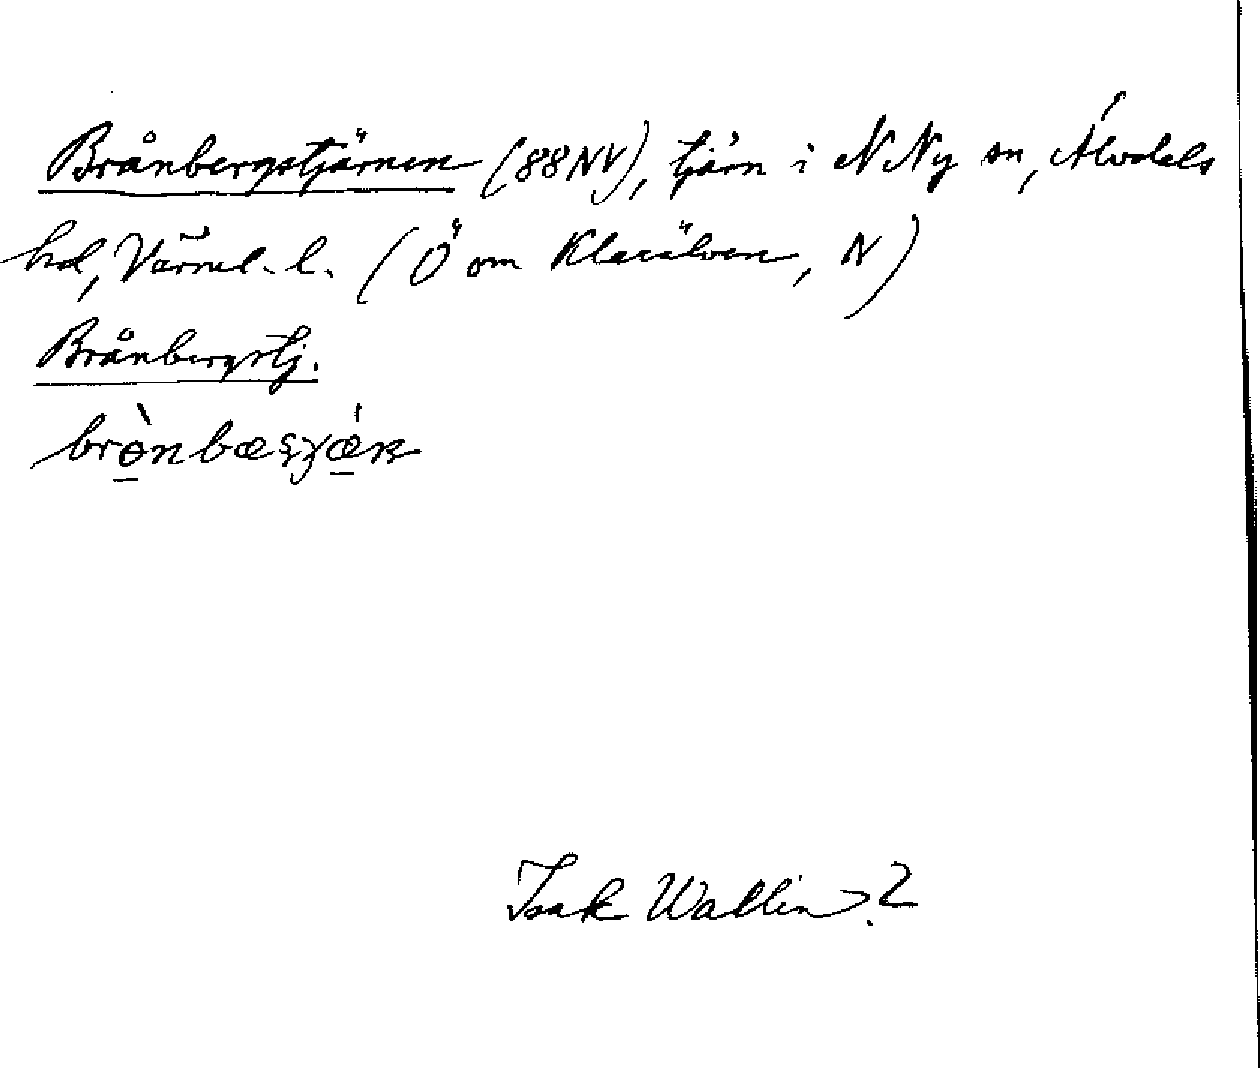 Brånbergstjärnen (88NV), tjärn i N Ny sn, Älvdals
hd, Värml. l. (Ö om Klarälven, N)
Brånbergstj.
Isak Wallin.2